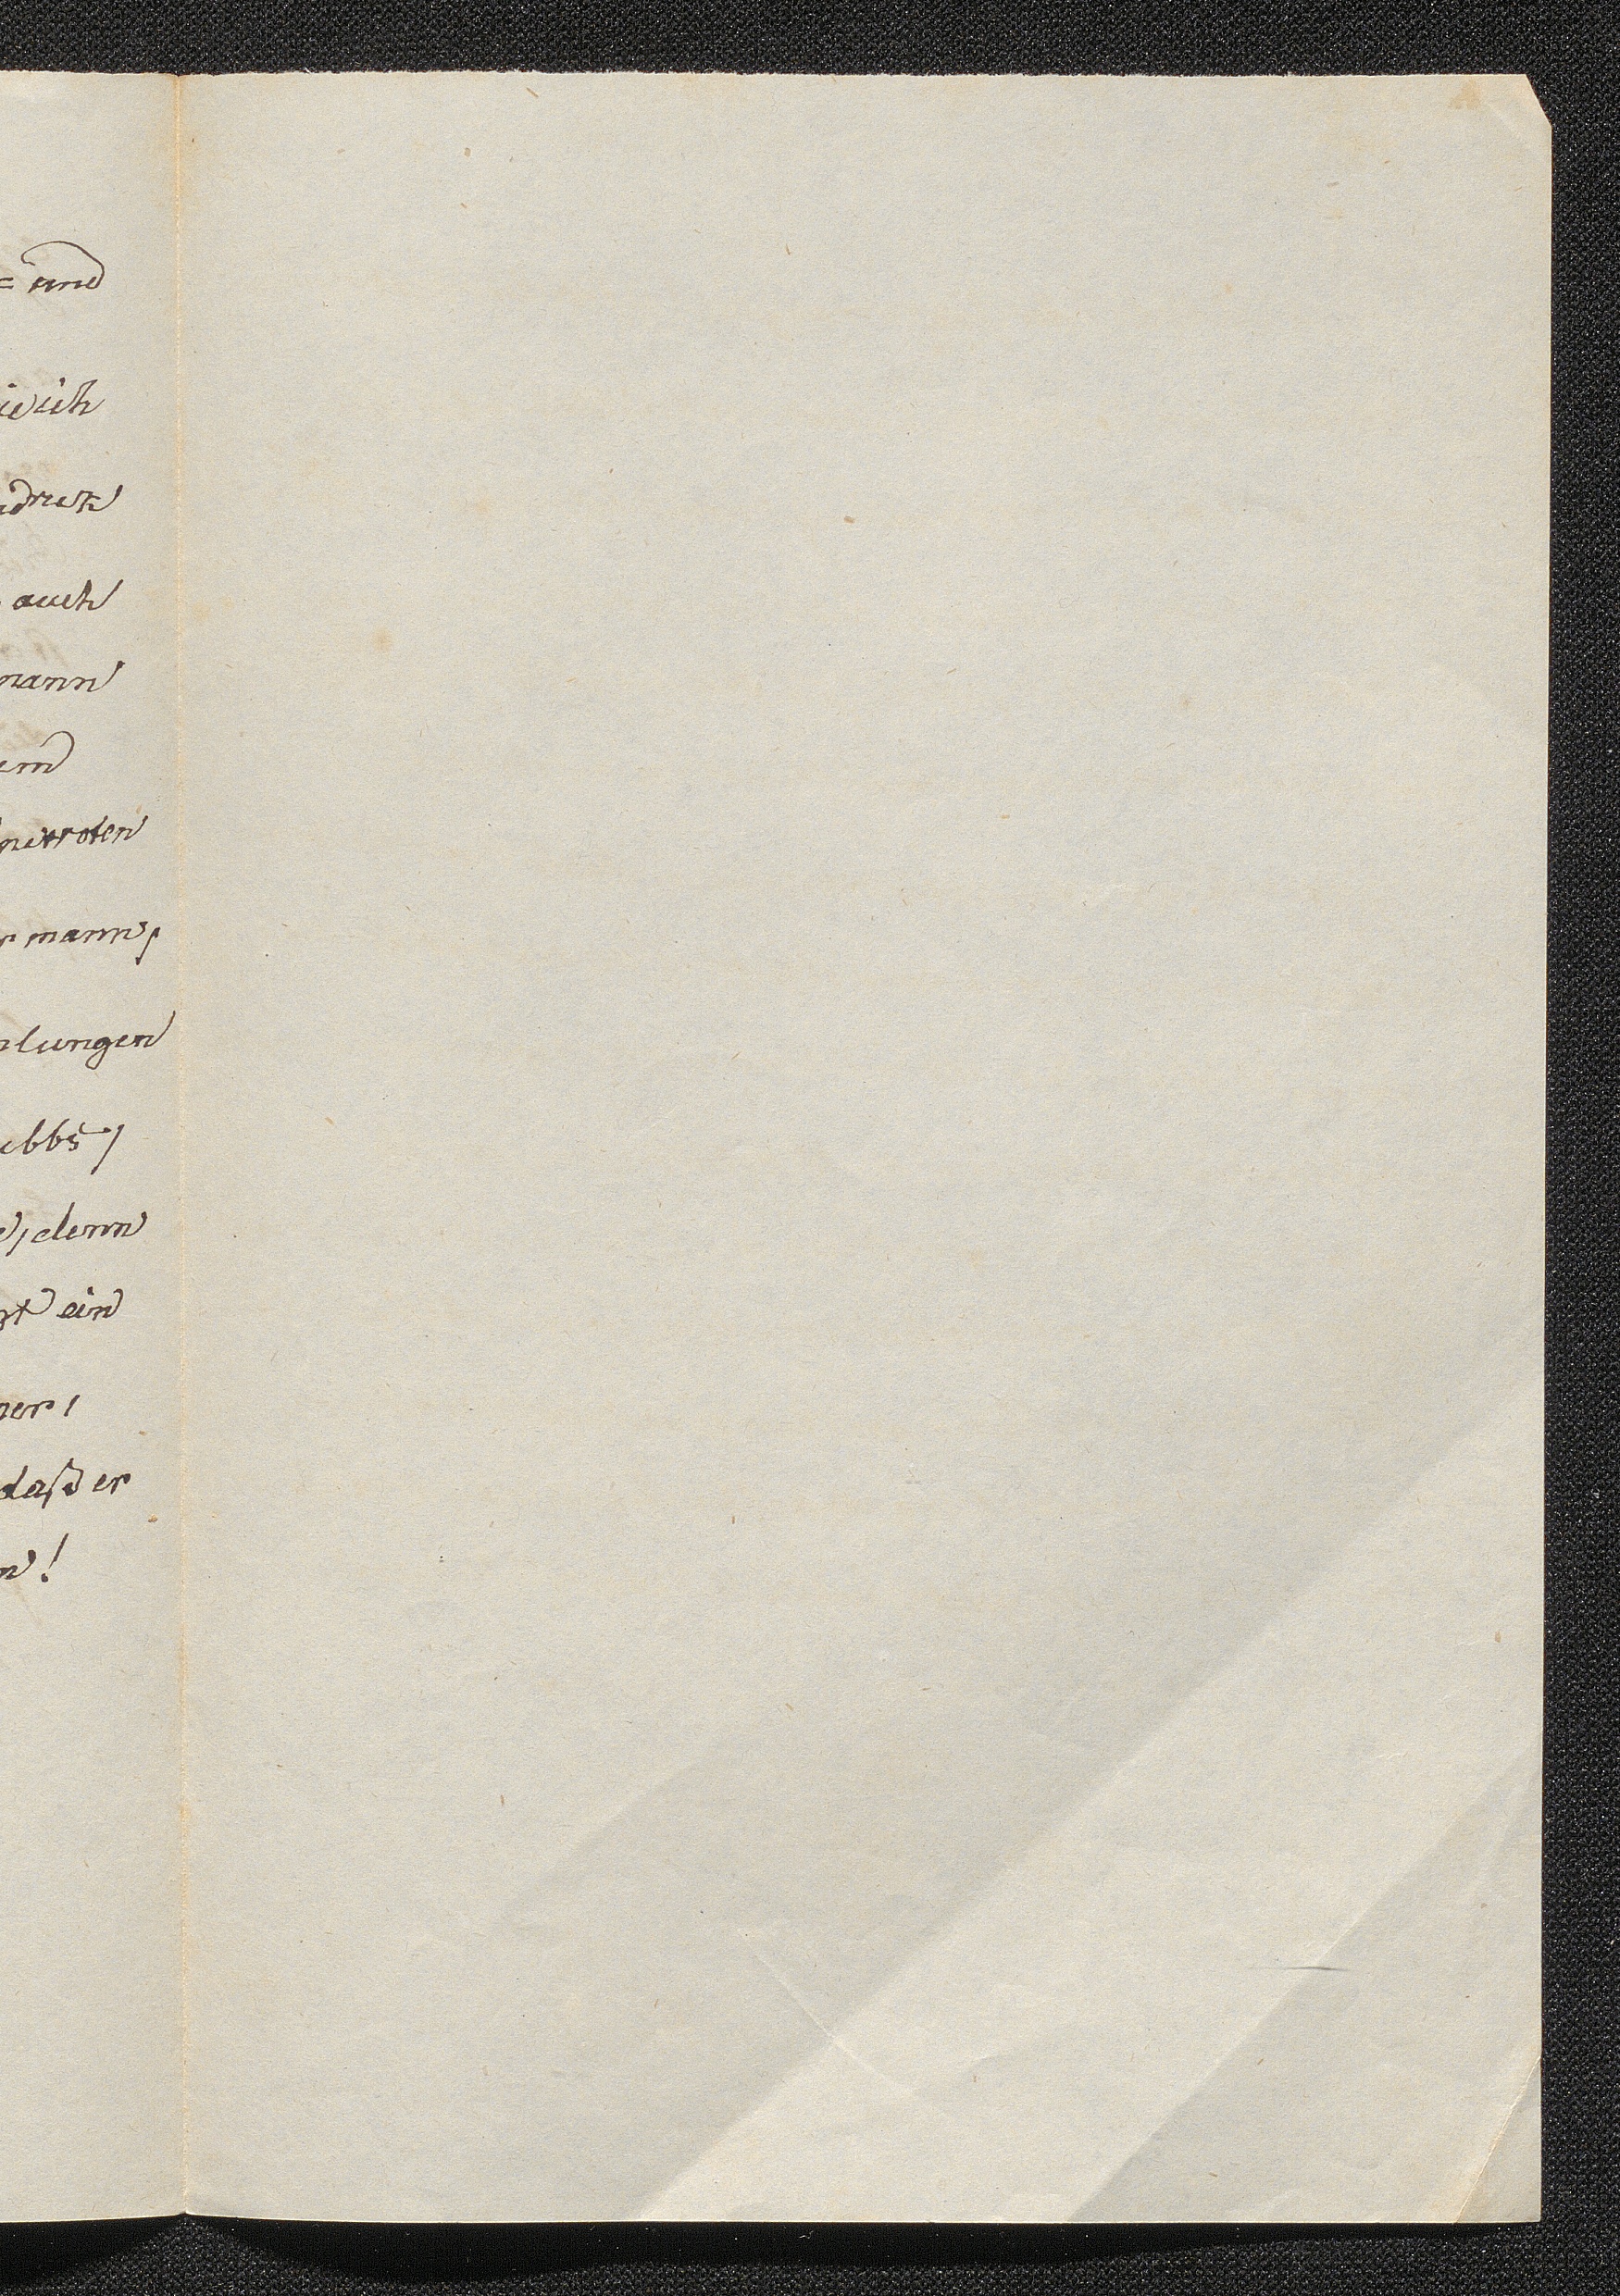 = und
ich
druck
auch
mann
und
roten
mann,
lungen
ubbs,
, denn
ein
er,
daß er
n!